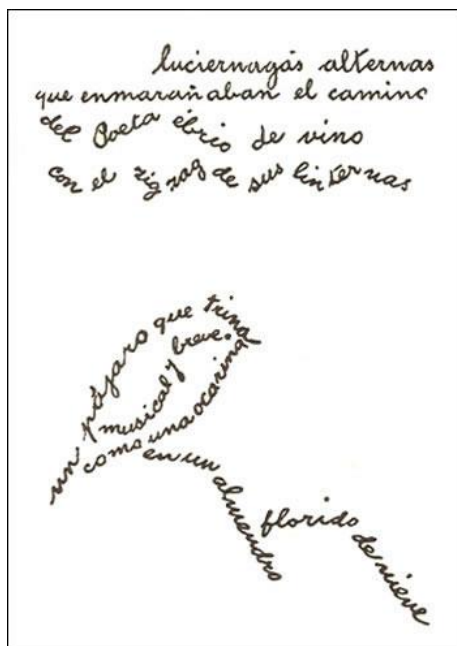 luciernagas alternas
que enmarañaban el camino
del Poeta ébrio de vino
con el zigzag de sus linternas
un pájaro que trina
musical y breve.
como una ocarina
en un almendro
florido
de nieve